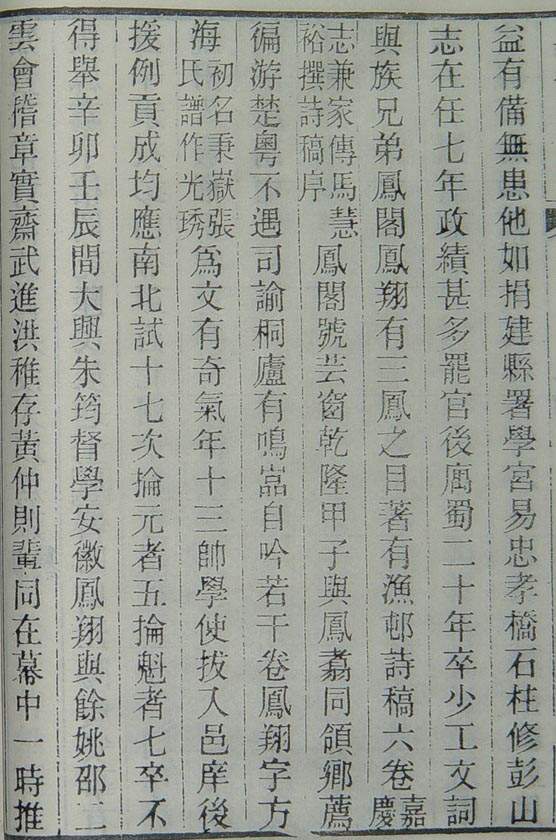 益有備無患他如捐建縣署學宮易忠孝橋石柱修彭山
志在任七年政績甚多罷官後寓蜀二十年卒少工文詞
與族兄弟鳳閣鳳翔有三鳳之目著有漁邨詩稿六卷嘉慶
志兼家傳馬慧裕撰詩稿序鳳閣號芸窗乾隆甲子與鳳翥同領鄉薦
徧游楚粵不遇司諭桐廬有鳴喦自吟若干卷鳳翔字方
海初名秉嶽張氏譜作光琇為文有奇氣年十三帥學使拔入邑庠後
援例貢成均應南北試十七次掄元者五掄魁者七卒不
得舉辛卯壬辰間大興朱筠督學安徽鳳翔與餘姚邵二
雲會稽章實齋武進洪稚存黃仲則輩同在幕中一時推